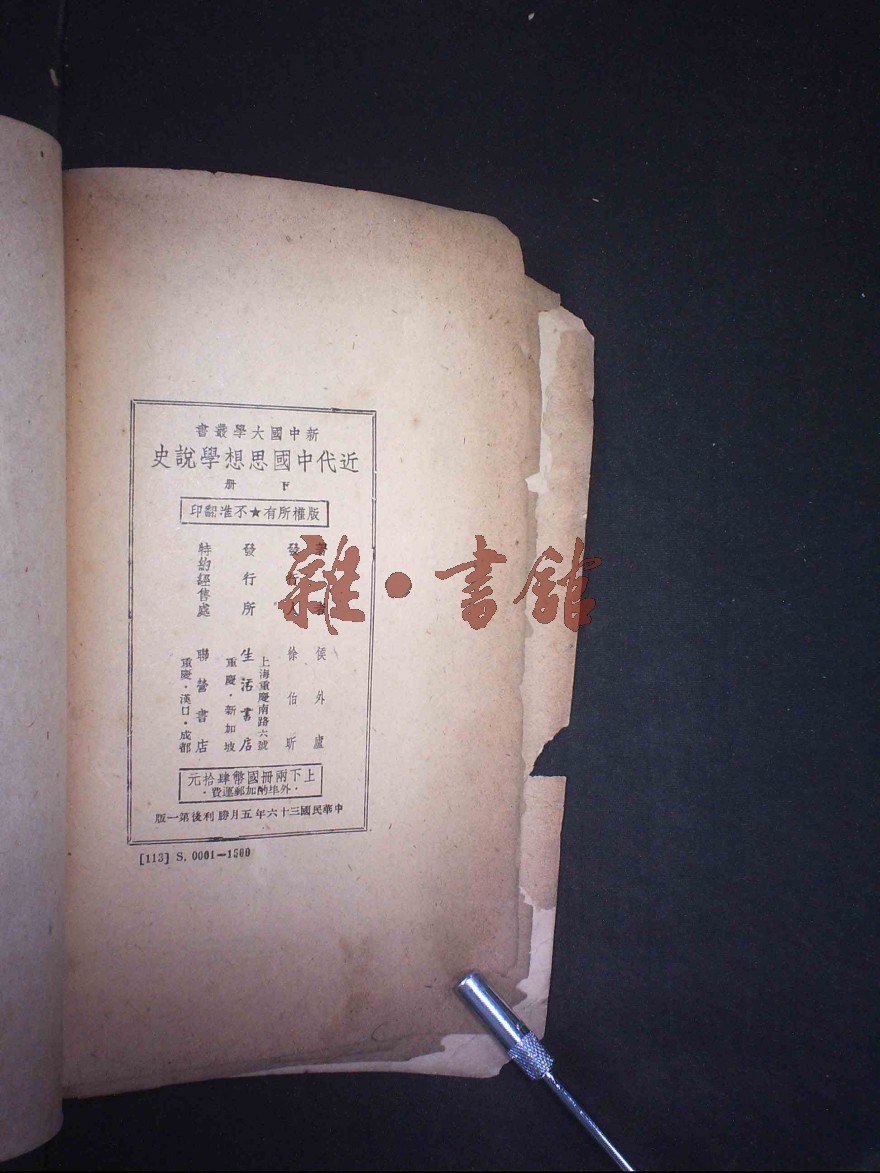 新中國大學叢書
近代中國思想學說史
下册
版權所有★不准翻印
著者 侯外廬
發行人 徐伯昕
發行所 生活書店
上海重慶南路六號
重慶·新加坡
特約經售處 聯營書店
重慶·漢口·成都
上下兩冊國幣肆拾元
·外埠酌加郵運費·
中華民國三十六年五月勝利後第一版
[113] S. 0001—1500
雜·書館